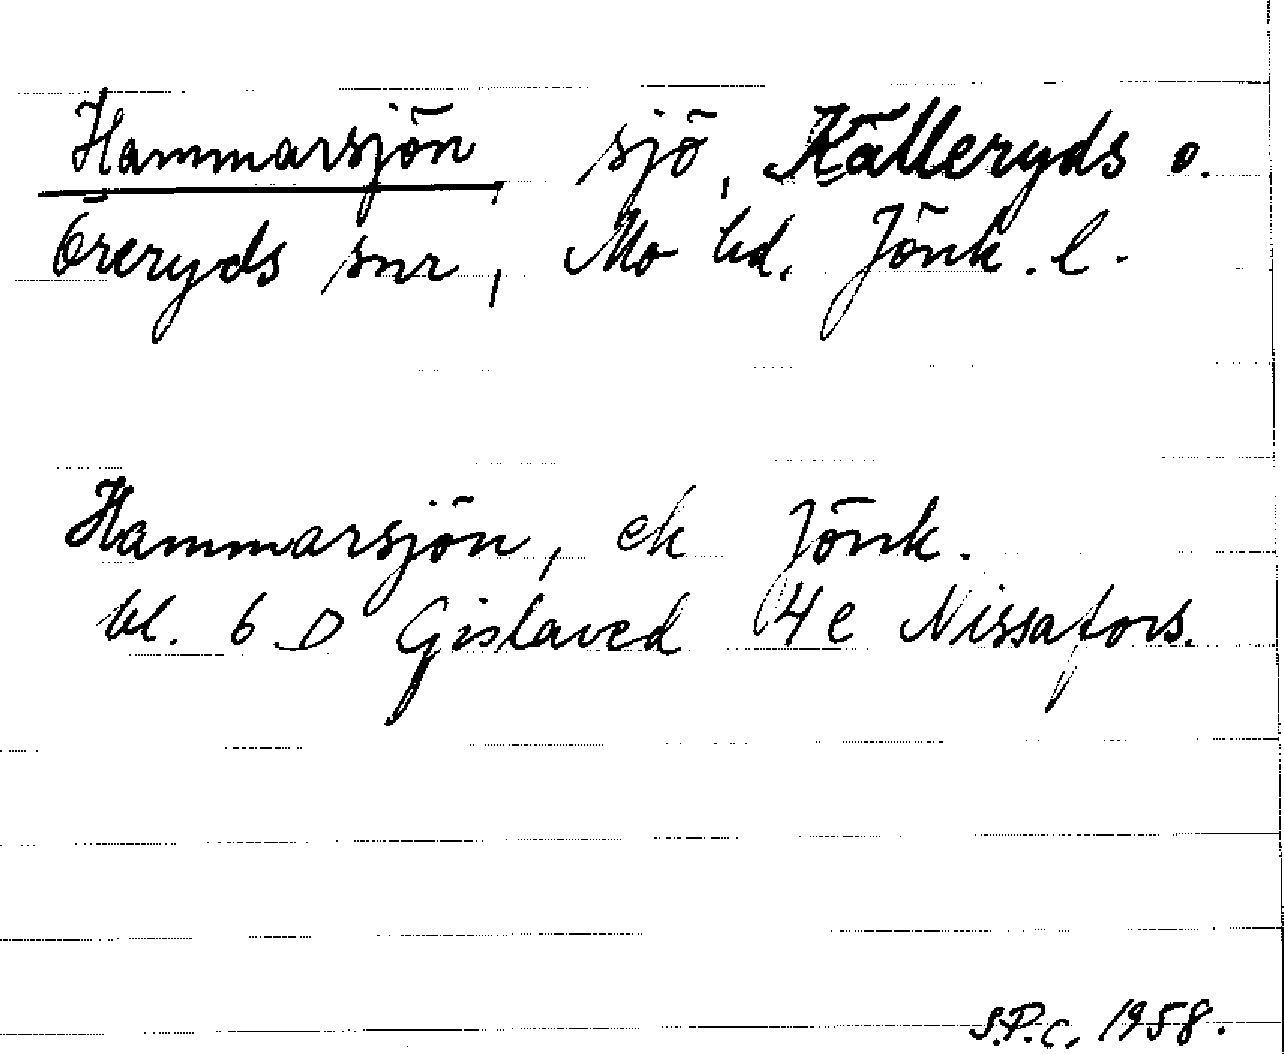 Hammarsjön, sjö, Källeryds o.
Öreryds snr, Mo hd. Jönk. l.
Hammarsjön, ek Jönk.
bl. 6 D Gislaved 4 e Nissafors.
S.P.c. 1958.